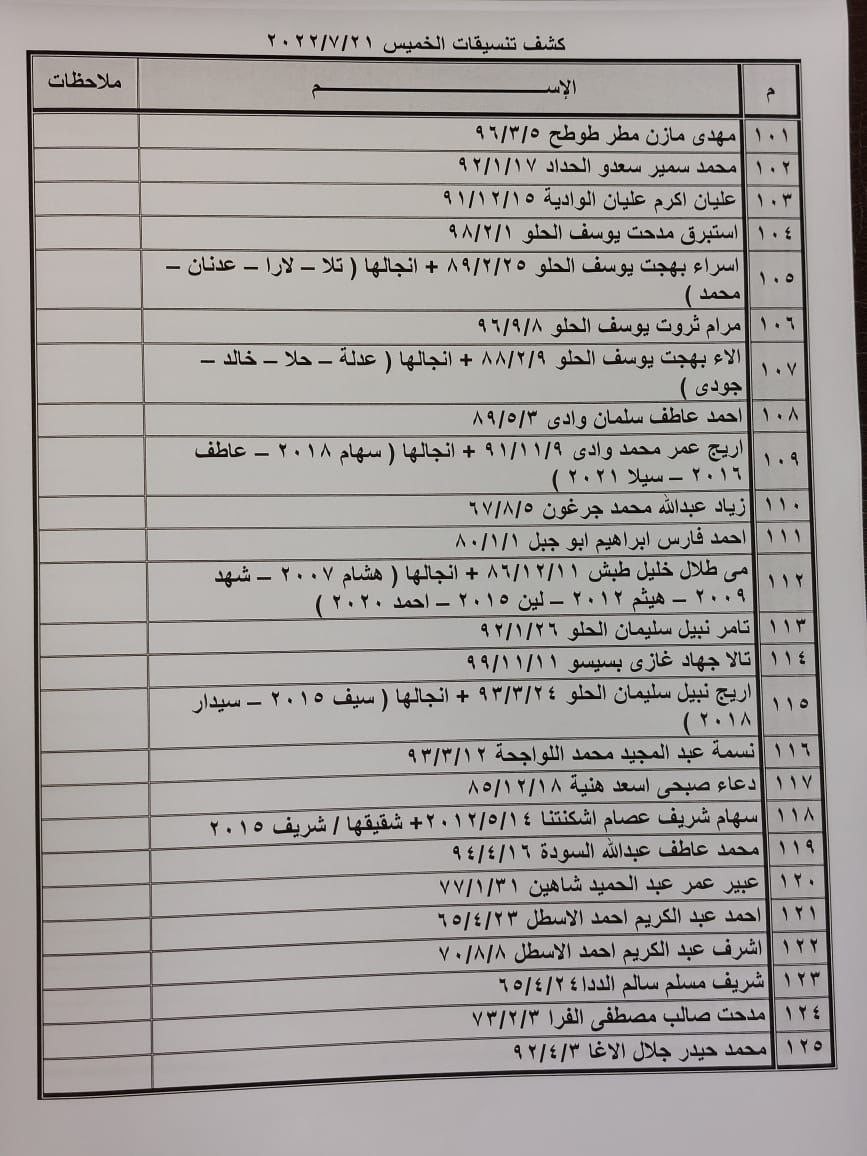 كشف تنسيقات الخميس ٢٠٢٢/٧/٢١
م الإســـــــــــم ملاحظات
١٠١ مهدى مازن مطر طوطح ٩٦/٣/٥
١٠٢ محمد سمير سعدو الحداد ٩٢/١/١٧
١٠٣ عليان اكرم عليان الوادية ٩١/١٢/١٥
١٠٤ استبرق مدحت يوسف الحلو ٩٨/٢/١
١٠٥ اسراء بهجت يوسف الحلو ٨٩/٢/٢٥ + انجالها ( تلا – لارا – عدنان –
محمد )
١٠٦ مرام ثروت يوسف الحلو ٩٦/٩/٨
١٠٧ الاء بهجت يوسف الحلو ٨٨/٢/٩ + انجالها ( عدلة – حلا – خالد –
جودى )
١٠٨ احمد عاطف سلمان وادى ٨٩/٥/٣
١٠٩ اريج عمر محمد وادى ٩١/١١/٩ + انجالها ( سهام ٢٠١٨ – عاطف
٢٠١٦ – سيلا ٢٠٢١ )
١١٠ زياد عبدالله محمد جرغون ٦٧/٨/٥
١١١ احمد فارس ابراهيم ابو جبل ٨٠/١/١
١١٢ مى طلال خليل طبش ٨٦/١٢/١١ + انجالها ( هشام ٢٠٠٧ – شهد
٢٠٠٩ – هيثم ٢٠١٢ – لين ٢٠١٥ – احمد ٢٠٢٠ )
١١٣ تامر نبيل سليمان الحلو ٩٢/١/٢٦
١١٤ تالا جهاد غازى بسيسو ٩٩/١١/١١
١١٥ اريج نبيل سليمان الحلو ٩٣/٣/٢٤ + انجالها ( سيف ٢٠١٥ – سيدار
٢٠١٨ )
١١٦ نسمة عبد المجيد محمد اللواجحة ٩٣/٣/١٢
١١٧ دعاء صبحى اسعد هنية ٨٥/١٢/١٨
١١٨ سهام شريف عصام اشكنتنا ٢٠١٢/٥/١٤+ شقيقها / شريف ٢٠١٥
١١٩ محمد عاطف عبدالله السودة ٩٤/٤/١٦
١٢٠ عبير عمر عبد الحميد شاهين ٧٧/١/٣١
١٢١ احمد عبد الكريم احمد الاسطل ٦٥/٤/٢٣
١٢٢ اشرف عبد الكريم احمد الاسطل ٧٠/٨/٨
١٢٣ شريف مسلم سالم الددا٦٥/٤/٢٤
١٢٤ مدحت صالب مصطفى الفرا ٧٣/٢/٣
١٢٥ محمد حيدر جلال الاغا ٩٢/٤/٣